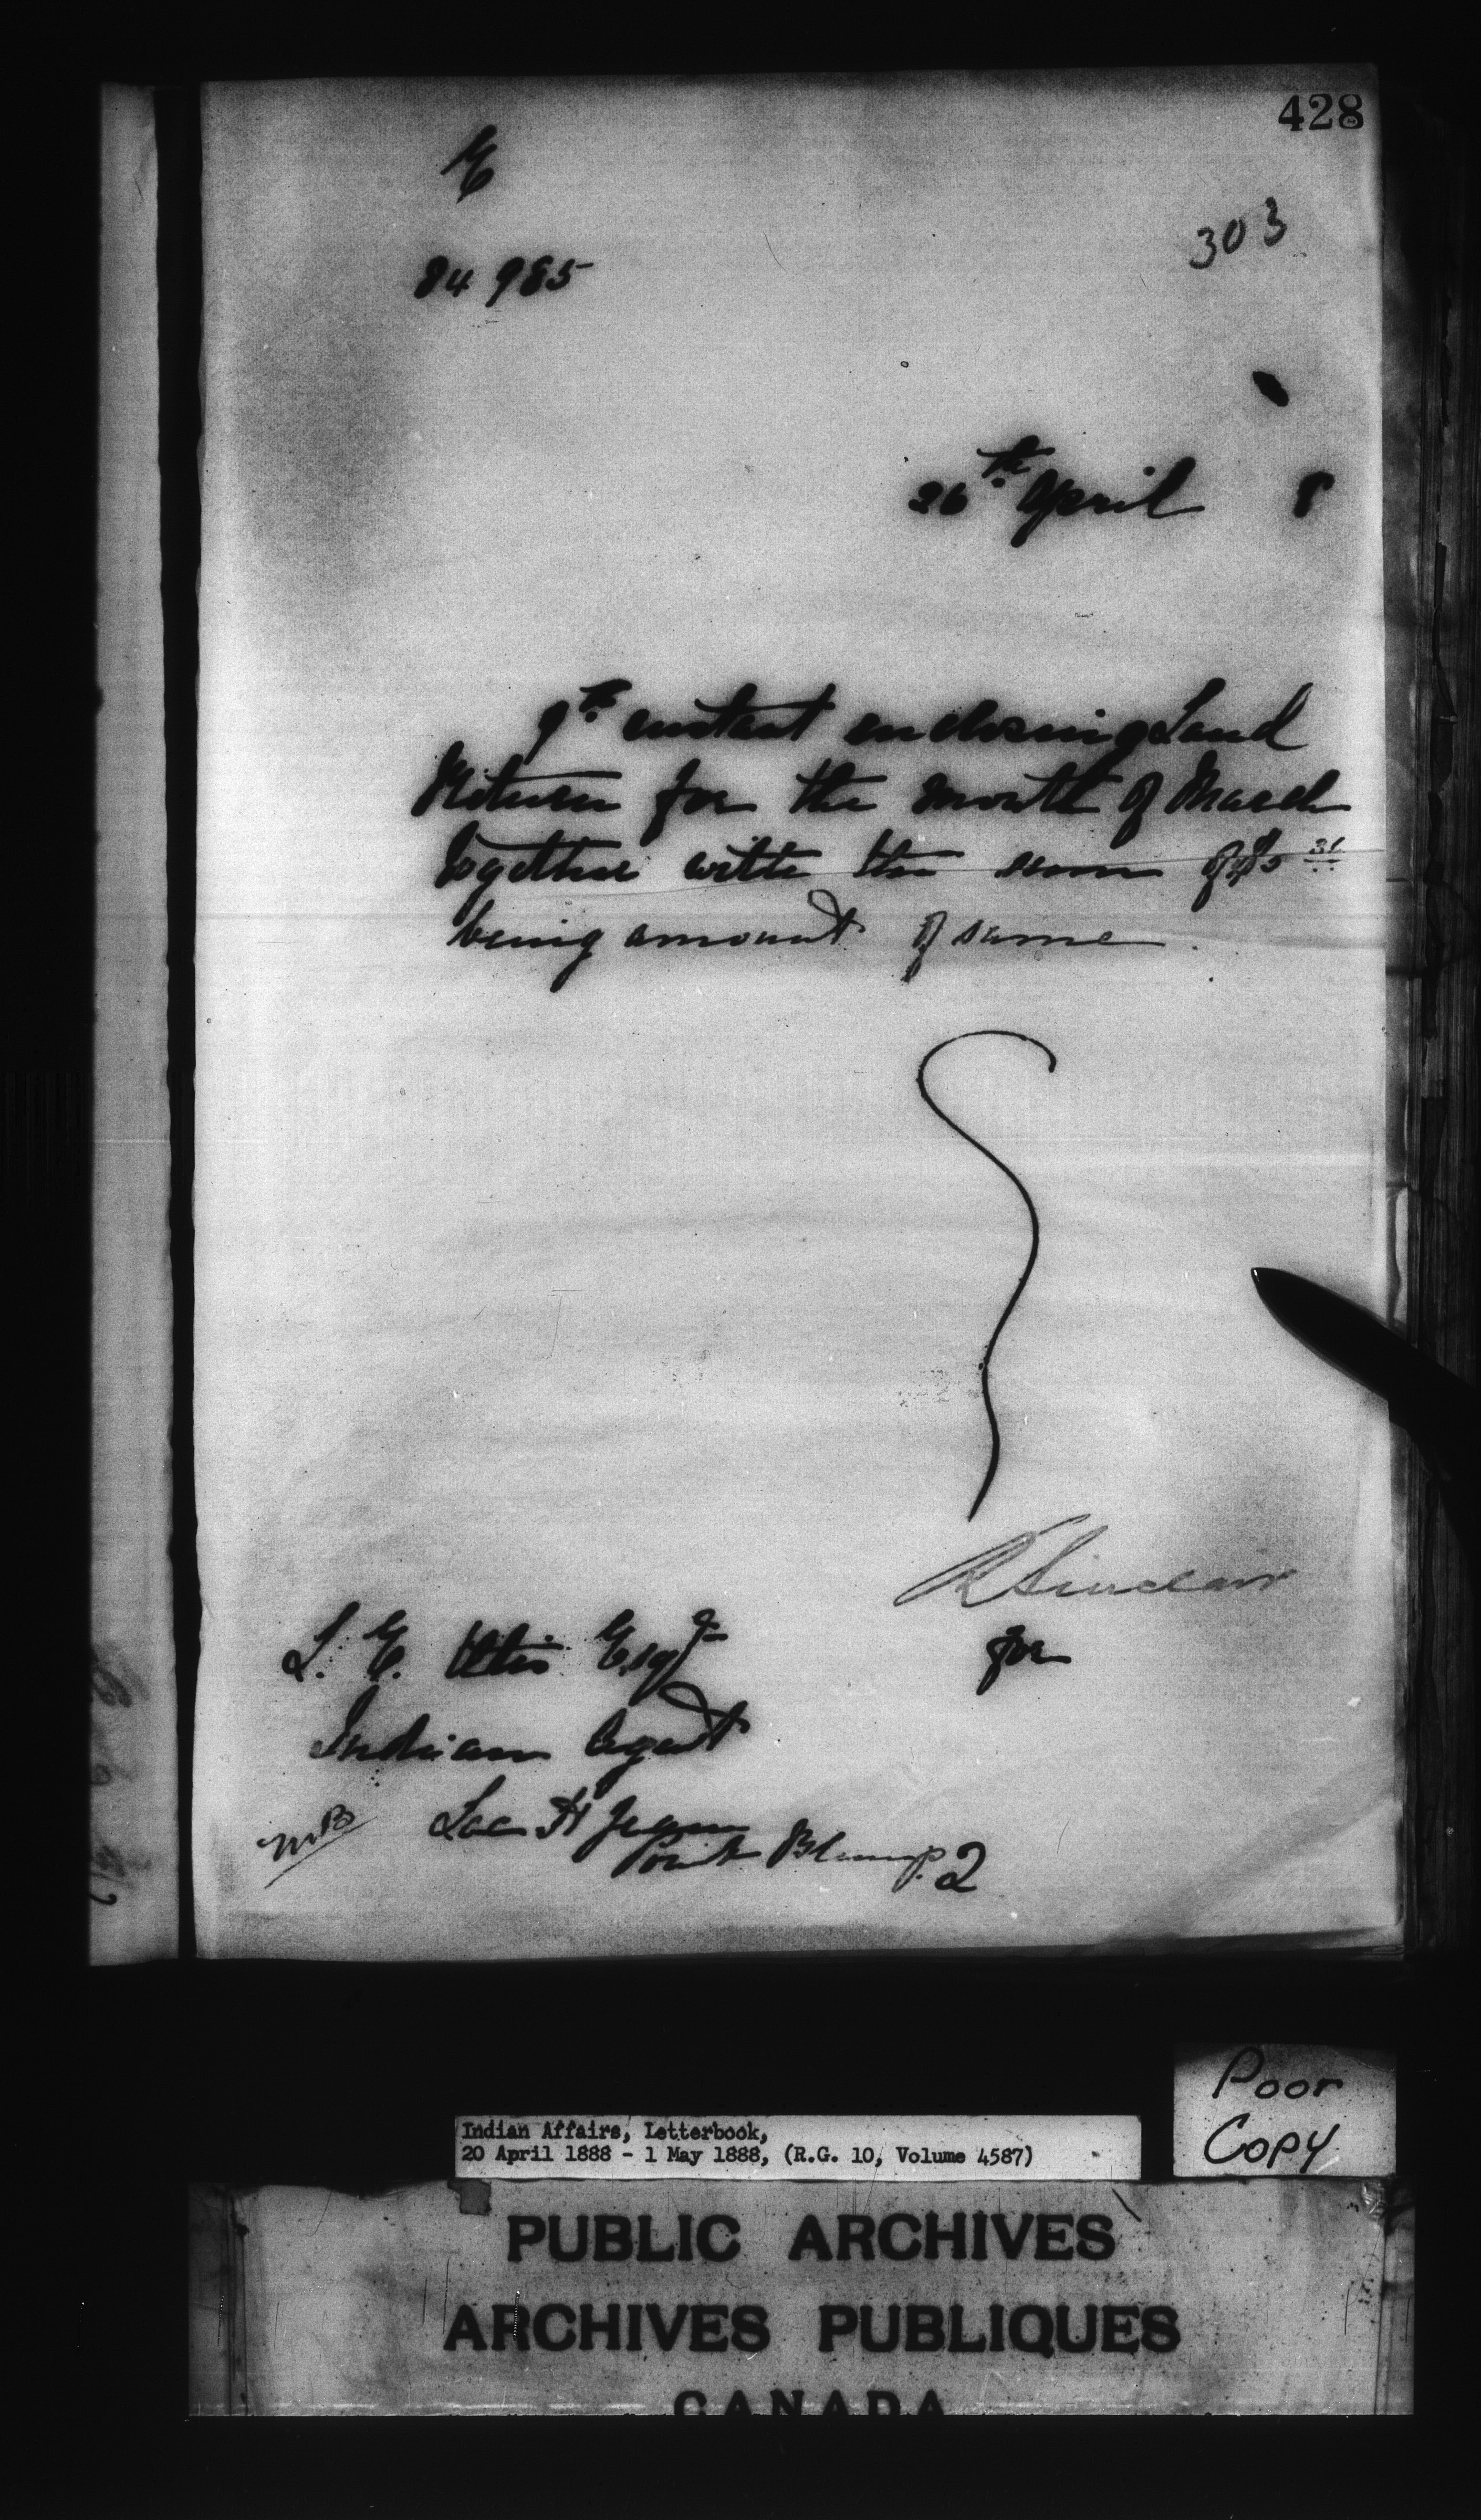 428
E
303
84 985
26th April 8
9th instant enclosing Land
Return for the month of March
together with the sum of
being amount of same.
R Sinclair
for
L. E. Otis Esqr
Indian Agent
Lac St Jean
Point Bleue P. Q
Poor
Copy
Indian Affairs, Letterbook,
20 April 1888 - 1 May 1888, (R.G. 10, Volume 4587)
PUBLIC ARCHIVES
ARCHIVES PUBLIQUES
CANADA